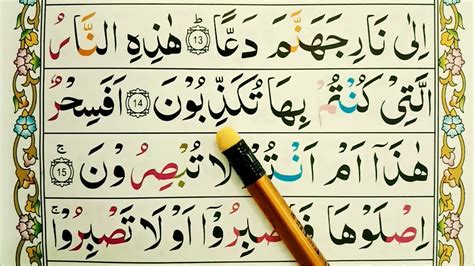 اِلٰى نَارِ جَهَنَّمَ دَعًّا ؕ ﴿13﴾ هٰذِهِ النَّارُ
الَّتِىْ كُنْتُمْ بِهَا تُكَذِّبُوْنَ ﴿14﴾ اَفَسِحْرٌ
هٰذَاۤ اَمْ اَنْتُمْ لَا تُبْصِرُوْنَ ۚ ﴿15﴾
اِصْلَوْهَا فَاصْبِرُوْۤا اَوْ لَا تَصْبِرُوْا ۚ